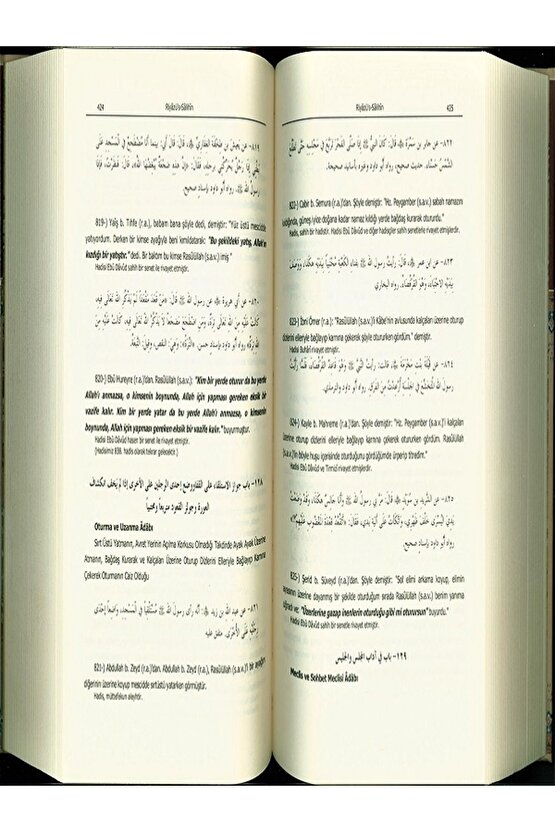 424
Riyâzü's-Sâlihîn
٨١٩- عن يعيش بن طخفة الغفاري ﷺ، قال: قال أبي: بينما أنا مضطجع في المسجد على
819-) Yaîş b. Tıhfe (r.a.), babam bana şöyle dedi, demiştir: "Yüz üstü mescidde
yatıyordum. Derken bir kimse ayağıyla beni kımıldatarak: "Bu şekildeki yatış, Allah'ın
kızdığı bir yatıştır." dedi. Bir baktım bu kimse Rasûlüllah (s.a.v.) imiş "
Hadisi Ebû Dâvûd sahih bir senet ile rivayet etmiştir.
820-) Ebû Hureyre (r.a.)'dan. Rasûlüllah (s.a.v.): "Kim bir yerde oturur da bu yerde
Allah'ı anmazsa, o kimsenin boynunda, Allah için yapması gereken eksik bir
vazife kalır. Kim bir yerde yatar da bu yerde Allah'ı anmazsa, o kimsenin
boynunda, Allah için yapması gereken eksik bir vazife kalır." buyurmuştur.
Hadisi Ebû Dâvûd hasen bir senet ile rivayet etmiştir.
(Hadisimiz 838. hadis olarak tekrar gelecektir.)
١٢٨- باب جواز الاستلقاء على القفا ووضع إحدى الرجلين على الأخرى إذا لم يخف انكشاف
العورة وجواز القعود متربعا ومحتبيا
Oturma ve Uzanma Âdâbı
Sırt Üstü Yatmanın, Avret Yerinin Açılma Korkusu Olmadığı Takdirde Ayak Ayak Üzerine
Atmanın, Bağdaş Kurarak ve Kalçaları Üzerine Oturup Dizlerini Elleriyle Bağlayıp Karnına
Çekerek Oturmanın Caiz Olduğu
٨٢١- عن عبد الله بن زيد ﷺ، أنه رأى رسول الله ﷺ مستلقيا في المسجد، واضعا إحدى
رجليه على الأخرى. متفق عليه
821-) Abdullah b. Zeyd (r.a.)'dan. Abdullah b. Zeyd (r.a.), Rasûlüllah (s.a.v.)'i bir ayağını
diğerinin üzerine koyup mescidde sırtüstü yatarken görmüştür.
Hadis, müttefekun aleyhtir.
Riyâzü's-Sâlihîn
425
٨٢٢- عن جابر بن سمرة ﷺ، قال: كان النبي ﷺ إذا صلى الفجر تربع في مجلسه حتى تطلع
الشمس حسناء. حديث صحيح، رواه أبو داود وغيره بأسانيد صحيحة.
822-) Câbir b. Semura (r.a.)'dan. Şöyle demiştir: "Hz. Peygamber (s.a.v.) sabah namazını
kıldığında, güneş iyice doğana kadar namaz kıldığı yerde bağdaş kurarak otururdu."
Hadis, sahih bir hadistir. Ebû Dâvûd ve diğer hadisçiler sahih senetlerle rivayet etmişlerdir.
٨٢٣- عن ابن عمر ﷺ، قال: رأيت رسول الله ﷺ بفناء الكعبة محتبيا بيديه هكذا، ووصف
بيديه الاحتباء، وهو القرفصاء. رواه البخاري
823-) İbni Ömer (r.a.): "Rasûlüllah (s.a.v.)'i Kâbe'nin avlusunda kalçaları üzerine oturup
dizlerini elleriyle bağlayıp karnına çekerek şöyle otururken gördüm." demiştir.
Hadisi Buhârî rivayet etmiştir.
٨٢٤- عن قيلة بنت مخرمة ﷺ، قالت: رأيت النبي ﷺ وهو قاعد القرفصاء، فلما رأيت
رسول الله المتخشع في الجلسة أرعدت من الفرق. رواه أبو داود والترمذي.
824-) Kayle b. Mahreme (r.a.)'dan. Şöyle demiştir: "Hz. Peygamber (s.a.v.)'i kalçaları
üzerine oturup dizlerini elleriyle bağlayıp karnına çekerek otururken gördüm. Rasûlüllah
(s.a.v.)'in böyle huşu içerisinde oturduğunu gördüğümde ürperip titredim."
Hadisi Ebû Dâvûd ve Tirmizî rivayet etmişlerdir.
٨٢٥- عن الشريد بن سويد ﷺ، قال: مر بي رسول الله ﷺ وأنا جالس هكذا، وقد وضعت
يدي اليسرى خلف ظهري، واتكأت على ألية يدي، فقال: «أتقعد قعدة المغضوب عليهم؟»
رواه أبو داود بإسناد صحيح.
825-) Şerîd b. Süveyd (r.a.)'dan. Şöyle demiştir: "Sol elimi arkama koyup, elimin
ayasının üzerine dayanmış bir şekilde oturduğum sırada Rasûlüllah (s.a.v.) benim yanıma
uğradı ve: "Üzerlerine gazap inenlerin oturduğu gibi mi oturursun" buyurdu."
Hadisi Ebû Dâvûd sahih bir senetle rivayet etmiştir.
١٢٩- باب في آداب المجلس والجليس
Meclis ve Sohbet Meclisi Âdâbı